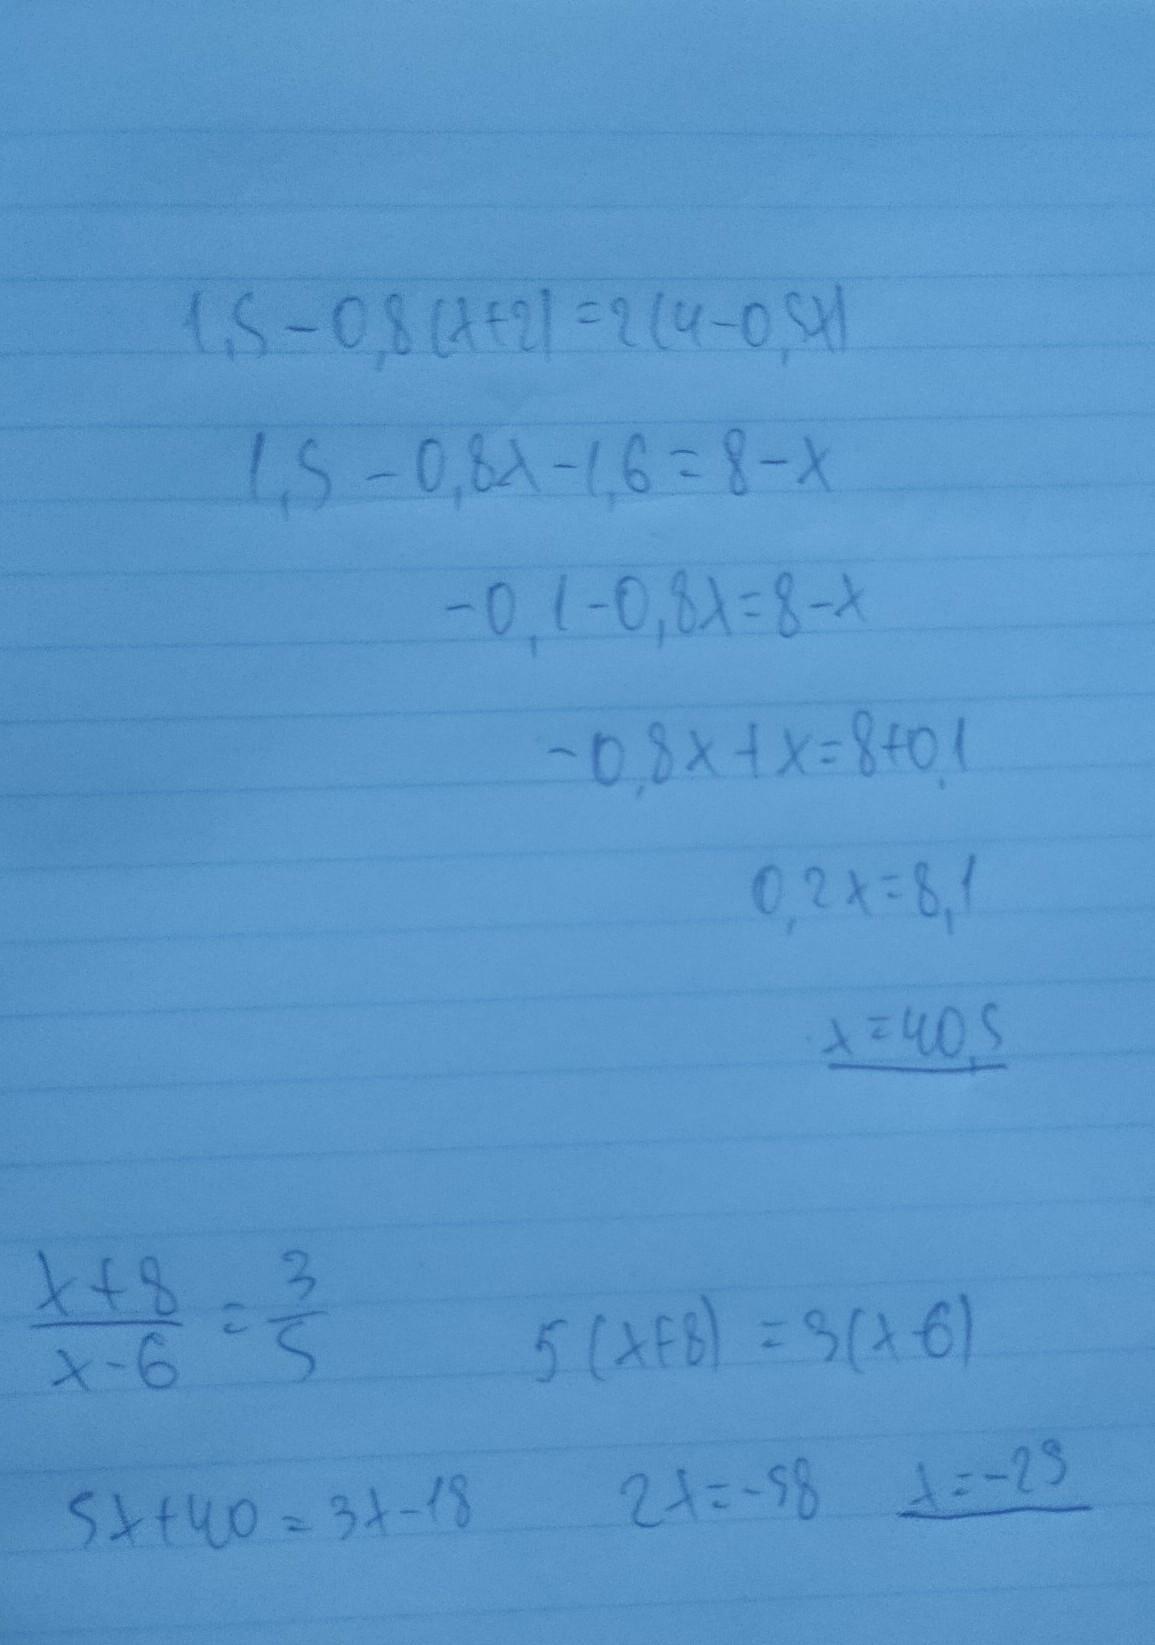 1,5-0,8(x+2)=2(4-0,5x)
1,5-0,8x-1,6=8-x
-0,1-0,8x=8-x
-0,8x+x=8+0,1
0,2x=8,1
x=40,5
x+8/x-6=3/5 5(x+8)=3(x-6)
5x+40=3x-18 2x=-58 x=-29